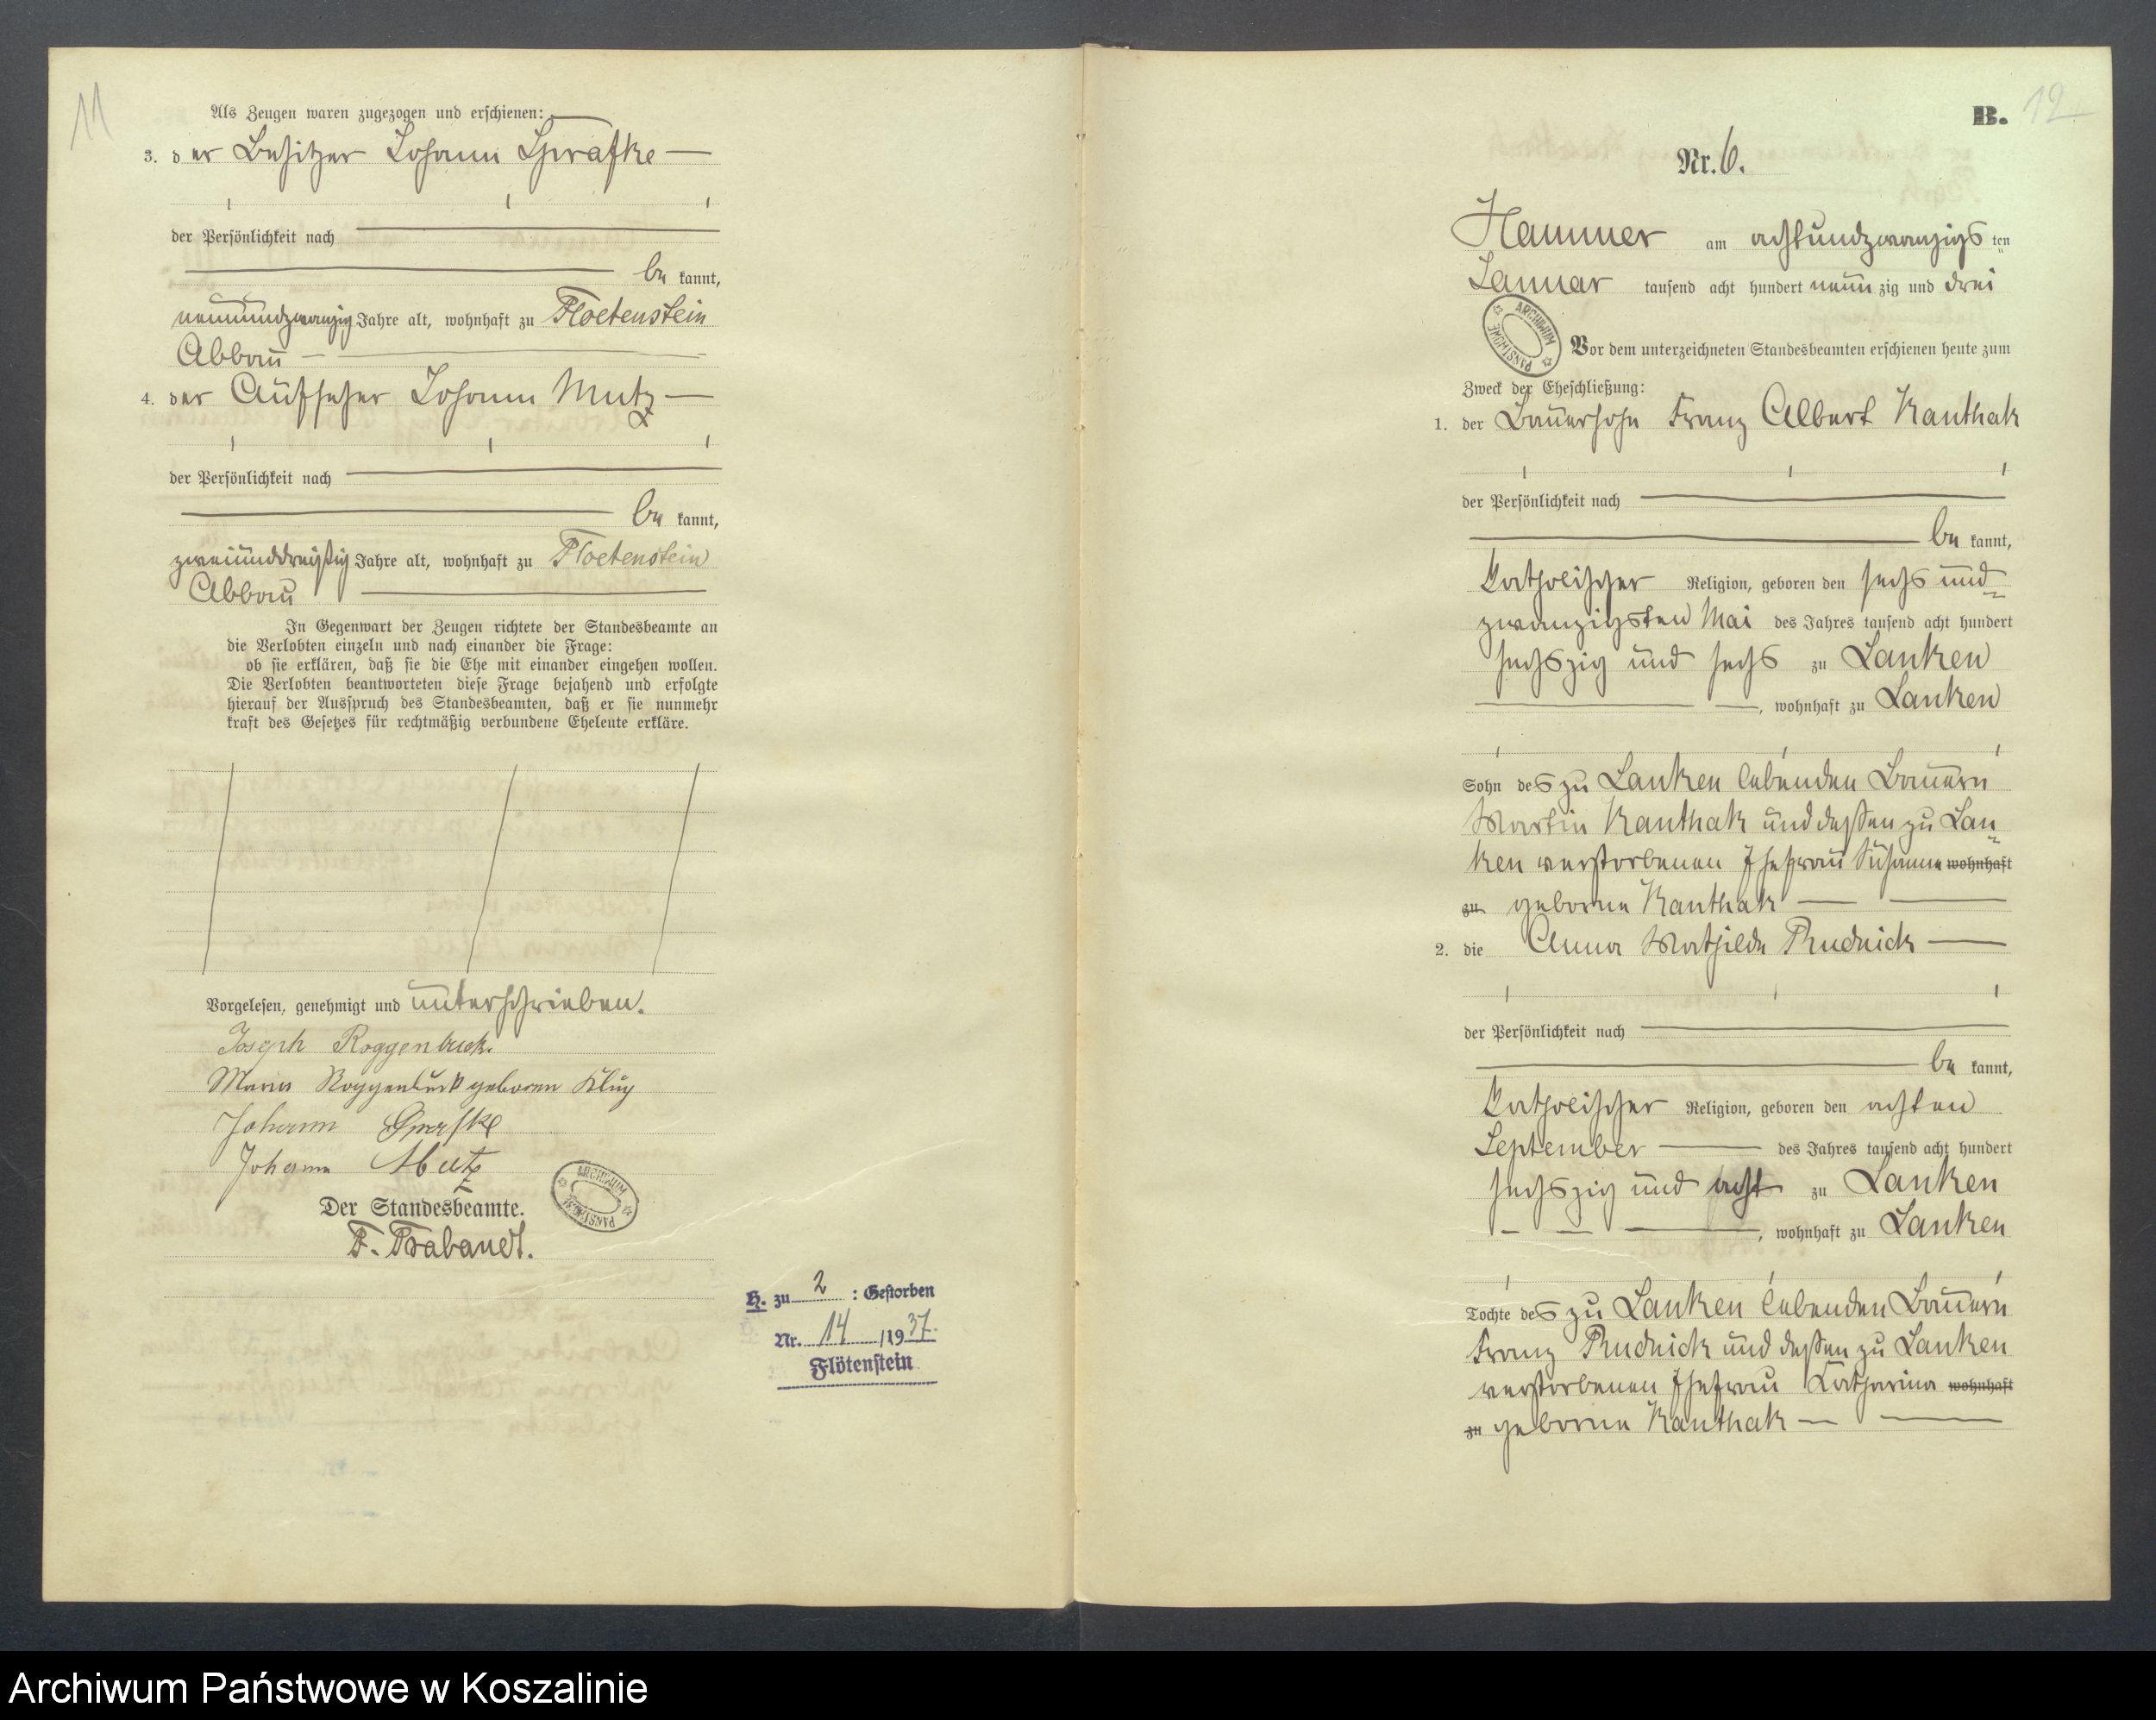 11
Als Zeugen waren zugezogen und erschienen:
3. der Besitzer Johann
der Persönlichkeit nach
be kannt,
neunundzwanzig Jahre alt, wohnhaft zu Floetenstein
Abbau
4. der Aufseher Johann Mutz
der Persönlichkeit nach
be kannt,
zweiunddreißig Jahre alt, wohnhaft zu Floetenstein
Abbau
In Gegenwart der Zeugen richtete der Standesbeamte an
die Verlobten einzeln und nach einander die Frage:
ob sie erklären, daß sie die Ehe mit einander eingehen wollen.
Die Verlobten beantworteten diese Frage bejahend und erfolgte
hierauf der Ausspruch des Standesbeamten, daß er sie nunmehr
kraft des Gesetzes für rechtmäßig verbundene Eheleute erkläre.
Vorgelesen, genehmigt und unterschrieben.
Joseph Roggenbuck.
Maria Roggenbuck geboren Klug
Johann
Johann Mutz
ARCHIWUM PAŃSTWOWE
Der Standesbeamte.
F. Brabandt.
H. zu 2 : Gestorben
Nr. 14 /1937.
Flötenstein
B. 12
Nr. 6.
Hammer am achtundzwanzigs ten
Januar tausend acht hundert neun zig und drei
ARCHIWUM PAŃSTWOWE
Vor dem unterzeichneten Standesbeamten erschienen heute zum
Zweck der Eheschließung:
1. der Bauersohn Franz Albert Kanthak
der Persönlichkeit nach
be kannt,
katholischer Religion, geboren den sechs und
zwanzigsten Mai des Jahres tausend acht hundert
sechszig und sechs zu Lanken
, wohnhaft zu Lanken
Sohn des zu Lanken lebenden Bauern
Martin Kanthak und dessen zu Lan
ken verstorbenen Ehefrau Susanna wohnhaft
zu geborne Kanthak
2. die Anna Mathilde Rudnick
der Persönlichkeit nach
be kannt,
katholischer Religion, geboren den achten
September des Jahres tausend acht hundert
sechszig und acht zu Lanken
, wohnhaft zu Lanken
Tochte des zu Lanken lebenden Bauern
Franz Rudnick und dessen zu Lanken
verstorbenen Ehefrau Katharina wohnhaft
zu geborne Kanthak
Archiwum Państwowe w Koszalinie